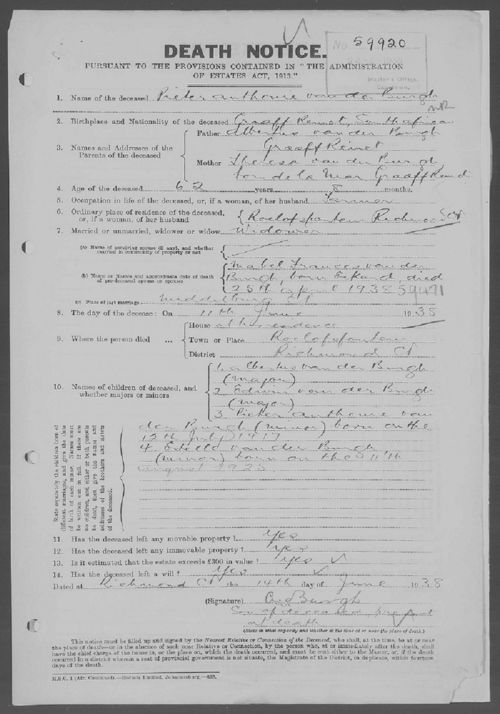 No 59920
DEATH NOTICE.
PURSUANT TO THE PROVISIONS CONTAINED IN "THE ADMINISTRATION
OF ESTATES ACT, 1913."
1. Name of the deceased Pieter Anthonie van der Burgh
2. Birthplace and Nationality of the deceased Graaff Reinet, South African
3. Names and Addresses of the Parents of the deceased
Father Albertus van der Burgh
Graaff Reinet
Mother Theresa van der Burgh
Graaff Reinet
4. Age of the deceased 62 years 8 months.
5. Occupation in life of the deceased, or, if a woman, of her husband Farmer
6. Ordinary place of residence of the deceased, or, if a woman, of her husband Roelofsfontein Richmond
7. Married or unmarried, widower or widow Widower
(a) Name of surviving spouse (if any), and whether married in community of property or not
(b) Name or Names and approximate date of death of pre-deceased spouse or spouses
Mabel Frances van der
Burgh, born died
25th April 1938 59491
(c) Place of last marriage Middelburg CP
8. The day of the decease: On 11th June 1938
9. Where the person died ...
House at his residence
Town or Place Roelofsfontein
District Richmond CP
10. Names of children of deceased, and whether majors or minors
1. Albertus van der Burgh
(major)
2. Edwin van der Burgh
(major)
3. Pieter Anthonie van
der Burgh (minor) born on the
12th July 1917
4. van der Burgh
(minor) born on the
August 1920
State separately the children born of different marriages, and give the date of birth of each minor. Names must be written out in full. If there are no children, and either or both parents be dead, then give the names and addresses of the brothers and sisters of the deceased.
11. Has the deceased left any movable property? Yes
12. Has the deceased left any immovable property? Yes
13. Is it estimated that the estate exceeds £300 in value? Yes
14. Has the deceased left a will? Yes
Dated at Richmond CP the 14th day of June 1938
(Signature) Burgh
Son of deceased present
at death
(State in what capacity and whether at the time at or near the place of death.)
This notice must be filled up and signed by the Nearest Relative or Connection of the Deceased, who shall, at the time, be at or near
the place of death—or in the absence of such near Relative or Connection, by the person who, at or immediately after the death, shall
have the chief charge of the house in, or the place on, which the death occurred, and must be sent either to the Master, or, if the death
occurred in a district wherein a seat of provincial government is not situate, the Magistrate of the District, in duplicate, within fourteen
days of the death.